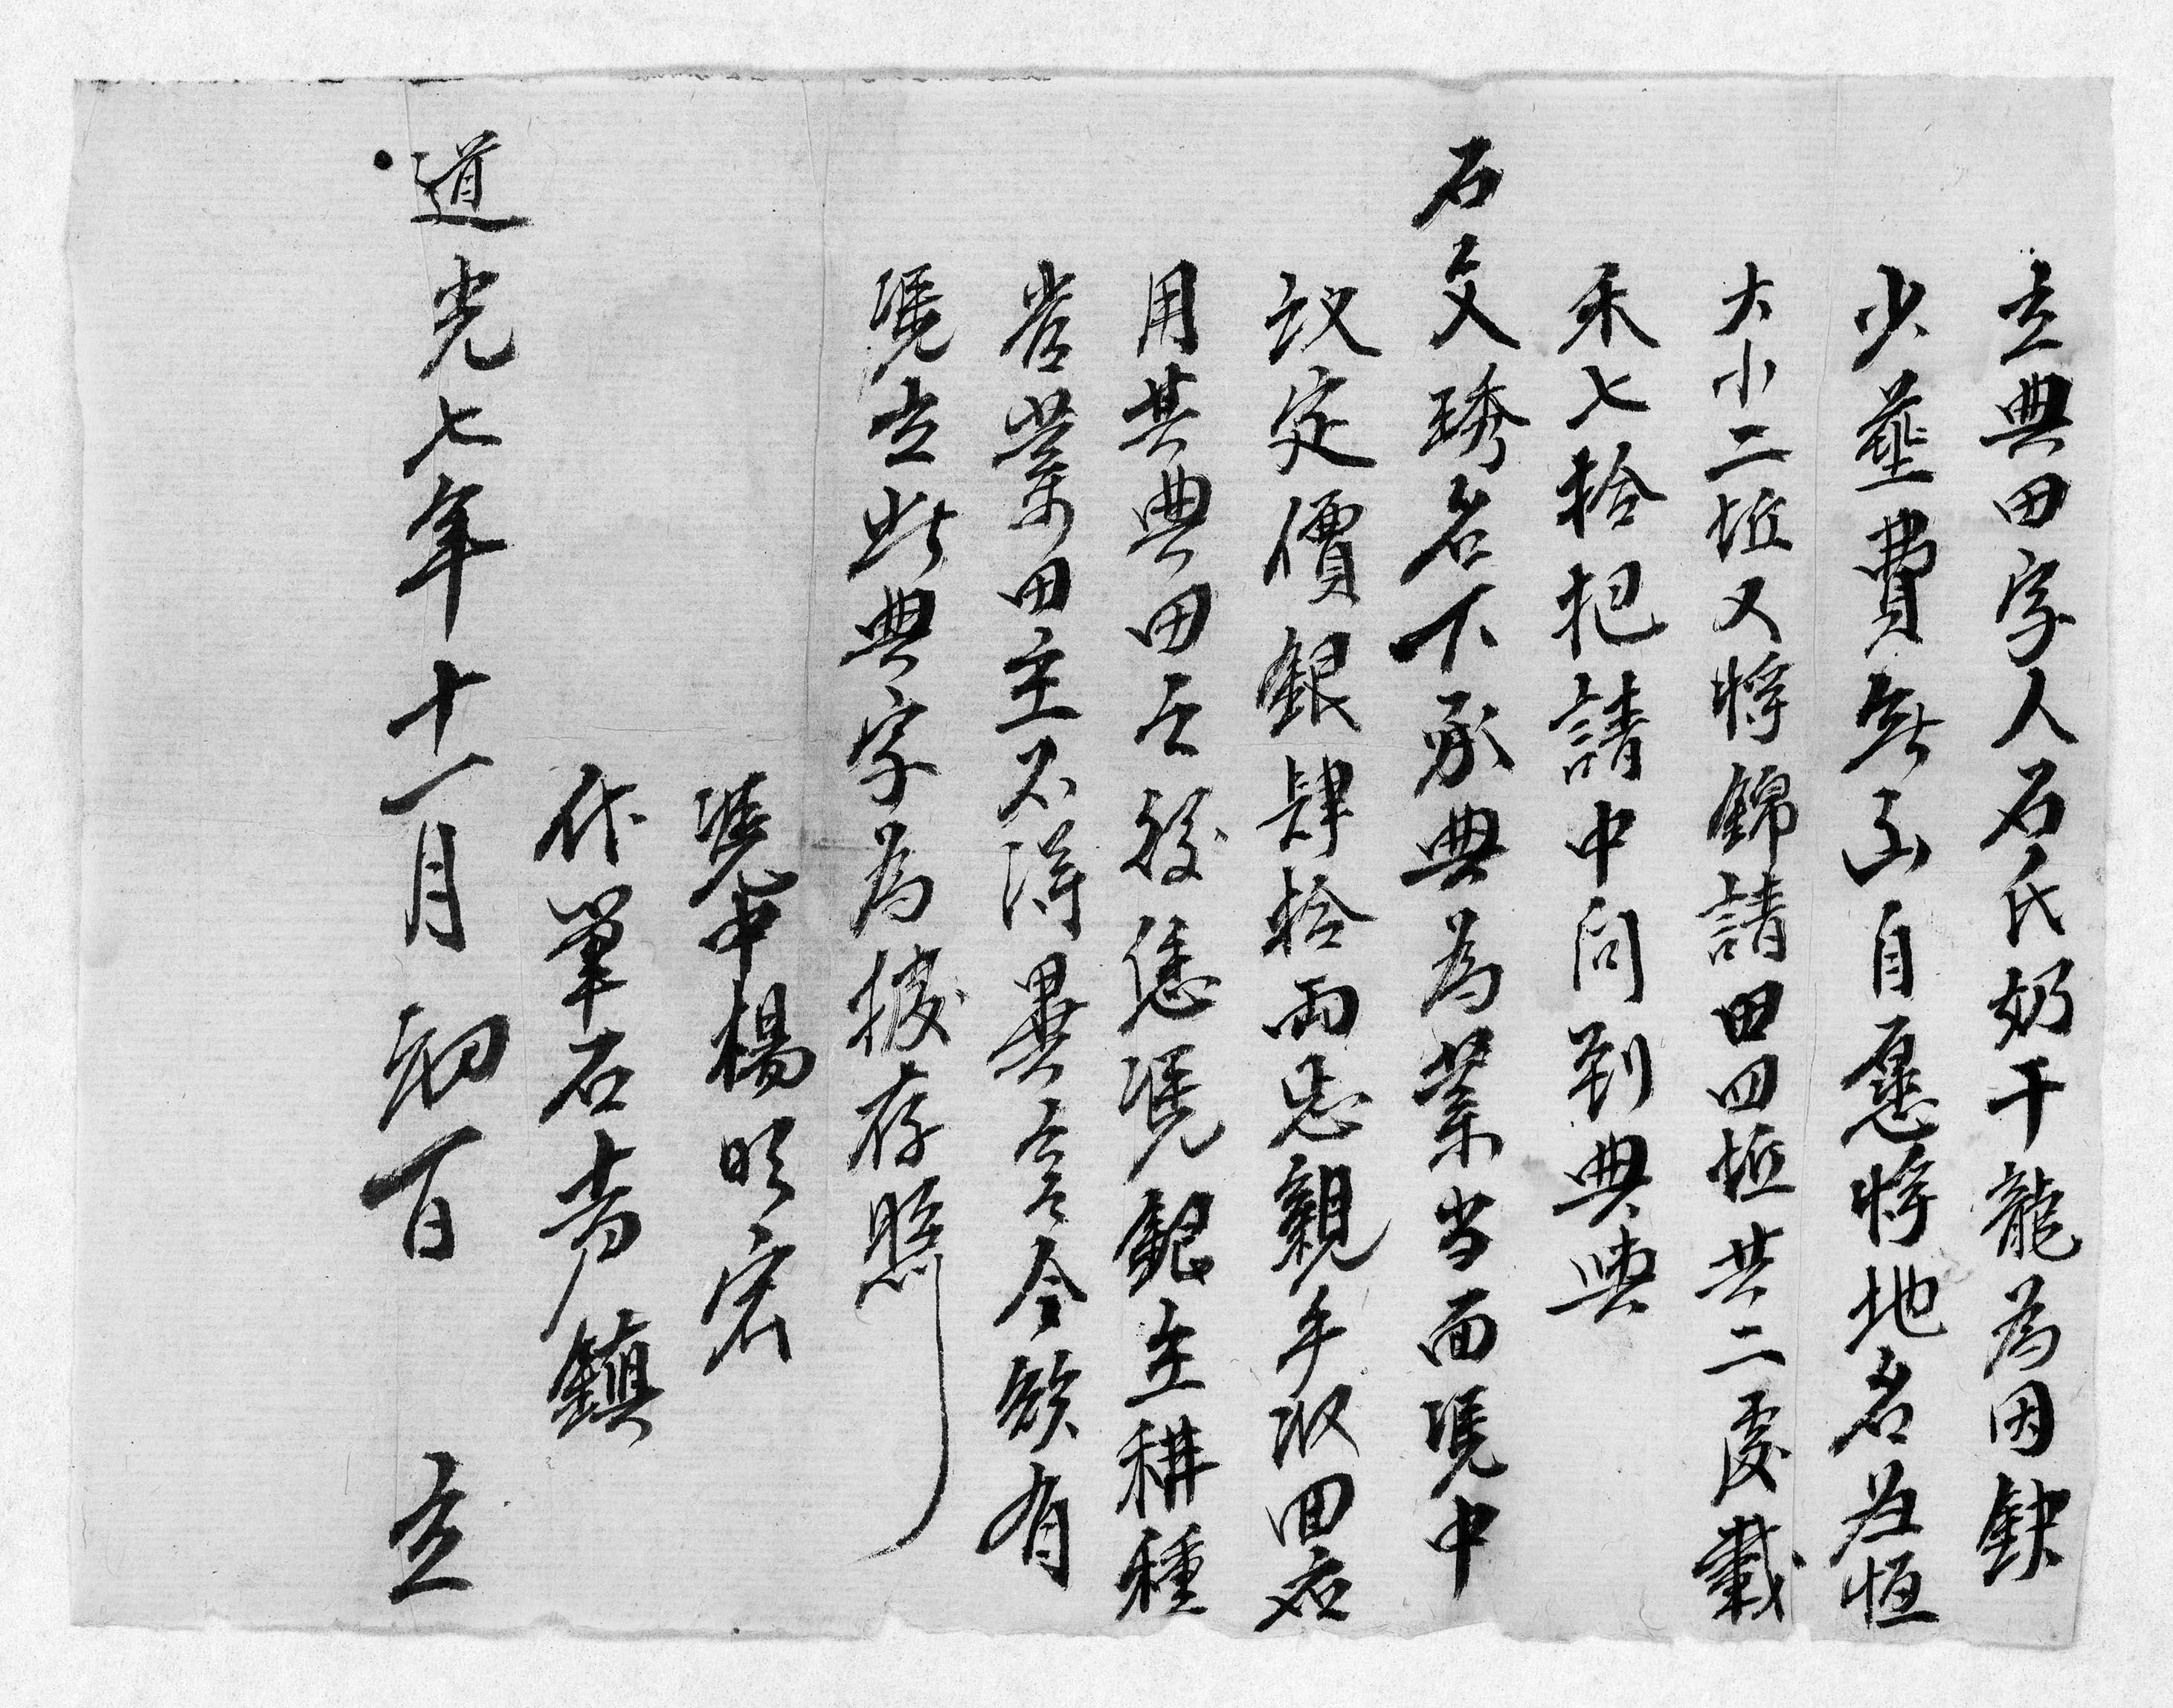 立典田字人石氏奶干龍為因缺
少葬費無出自愿將地名為恒
大小二坵又將錦請田四坵共二處載
禾七拾把請中问到典與
石文琇名下承典為業当面凴中
议定價銀肆拾両足親手收回
用其典田之後恁凴銀主耕種
管業田主不淂異言今欲有
凴立此典字為拠存照
凴中楊明宏
代筆石鎮
道光七年十一月初一日 立